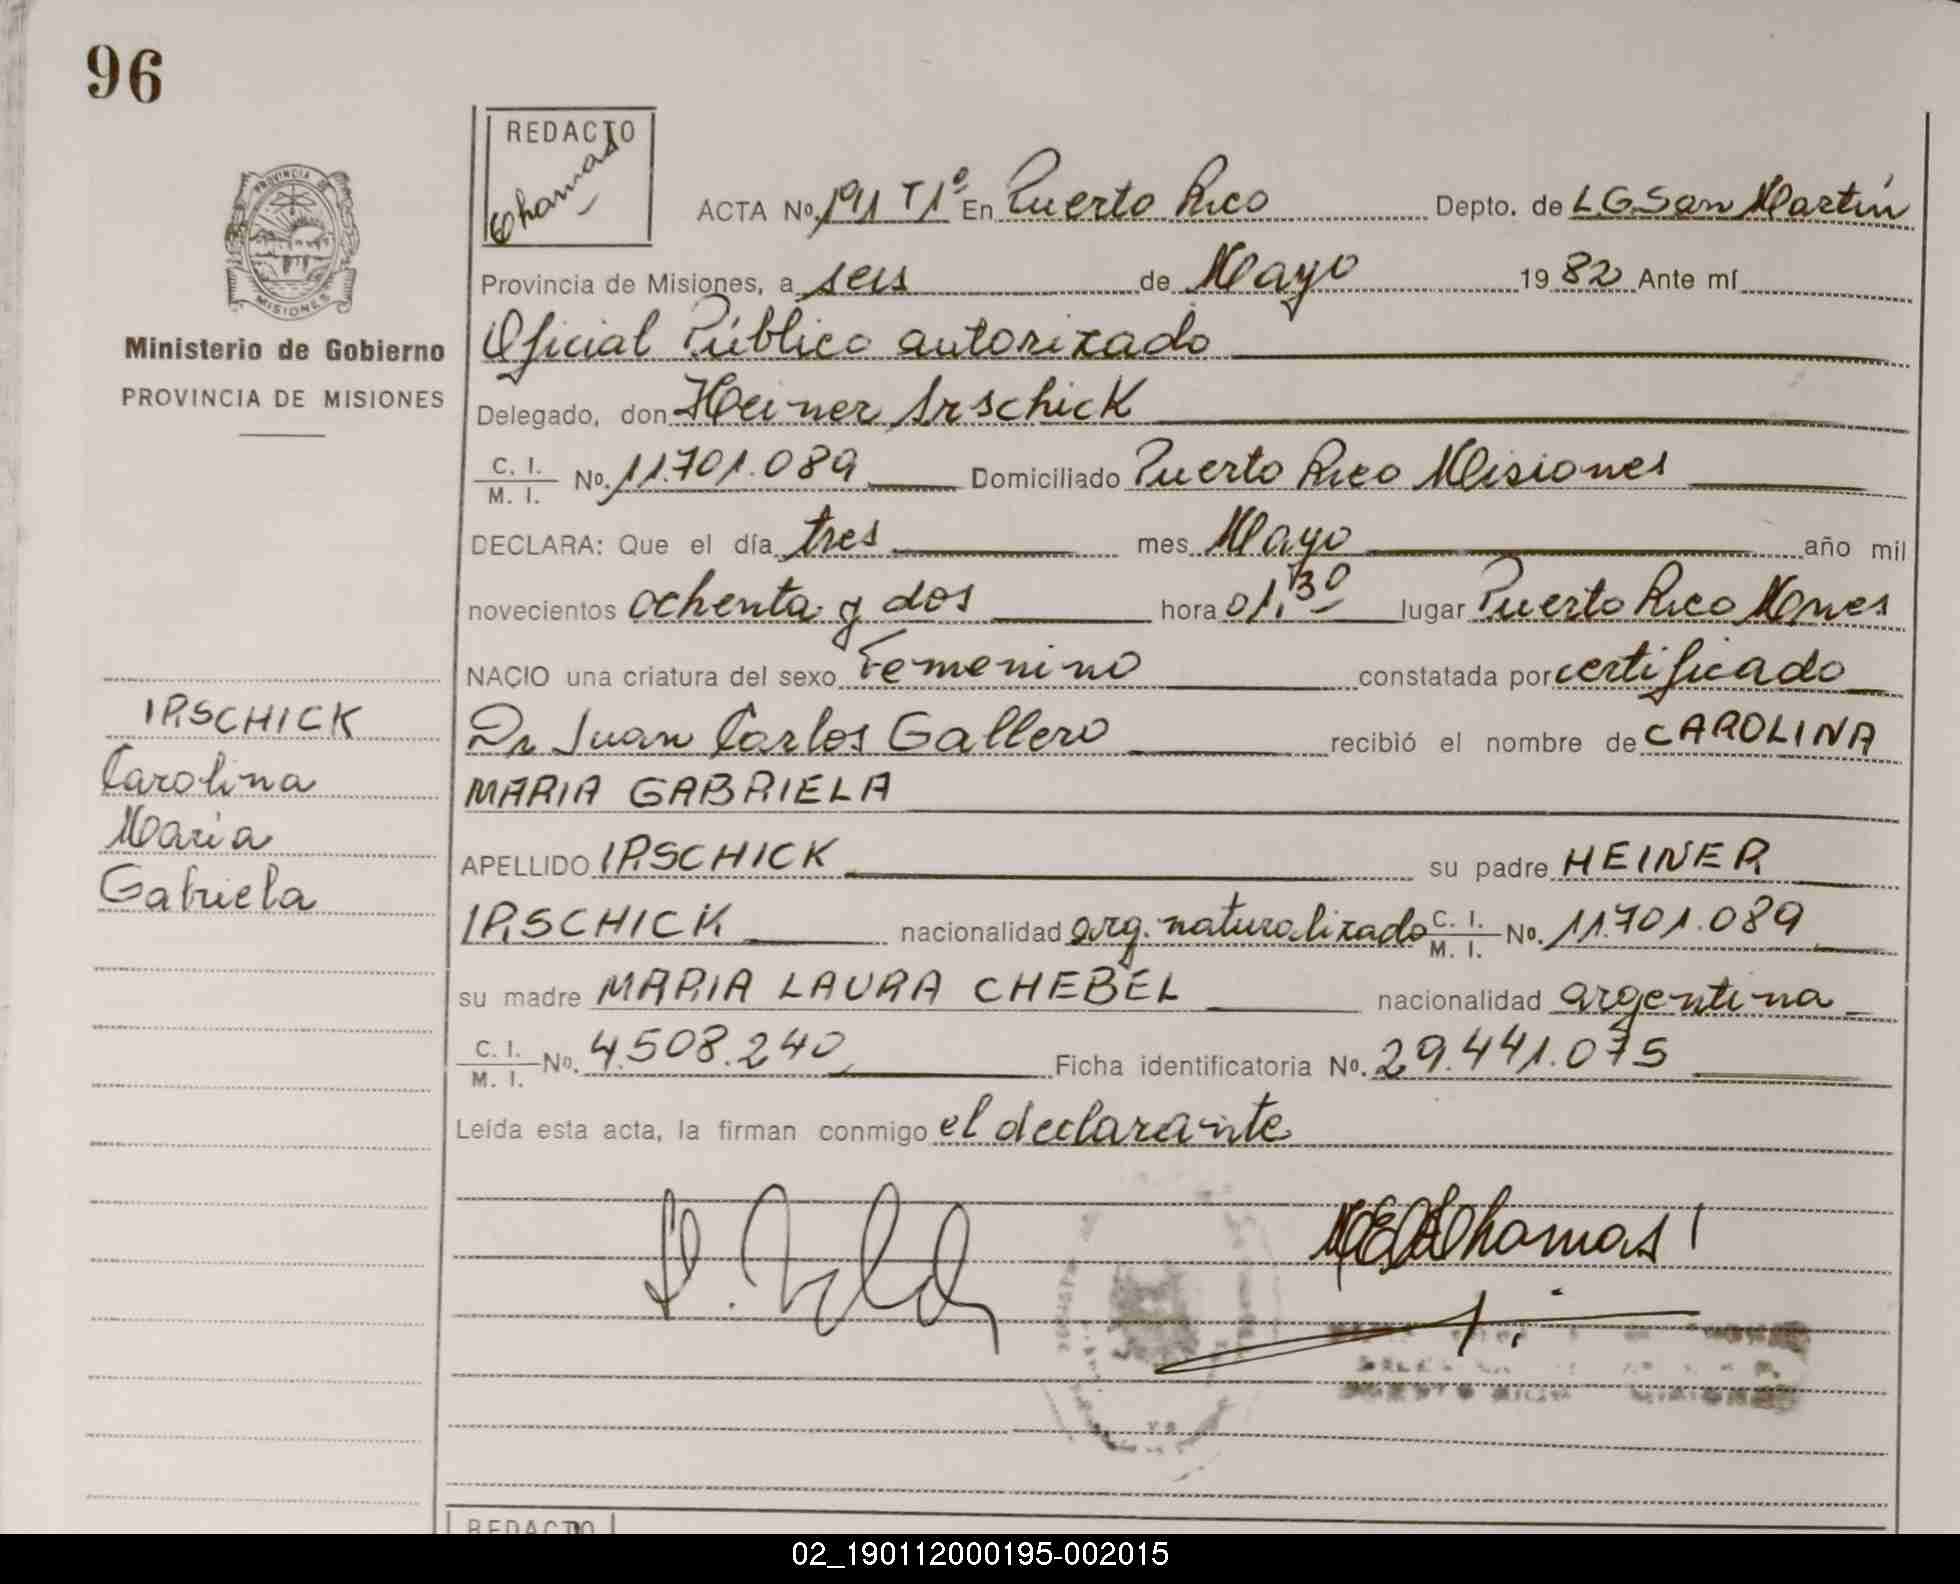 96
REDACTO
Thomas
PROVINCIA DE
MISIONES
Ministerio de Gobierno
PROVINCIA DE MISIONES
ACTA No. 191 T1º En Puerto Rico Depto. de L.G. San Martín
Provincia de Misiones, a seis de Mayo 1982 Ante mí
Oficial Público autorizado
Delegado, don Heiner Irschick
C. I. / M. I. No. 11.701.089 Domiciliado Puerto Rico Misiones
DECLARA: Que el día tres mes Mayo año mil
novecientos ochenta y dos hora 01,30 lugar Puerto Rico Mnes
NACIO una criatura del sexo Femenino constatada por certificado
Dr Juan Carlos Gallero recibió el nombre de CAROLINA
MARIA GABRIELA
APELLIDO IRSCHICK su padre HEINER
IRSCHICK nacionalidad arg. naturalizado C. I. / M. I. No. 11.701.089
su madre MARIA LAURA CHEBEL nacionalidad argentina
C. I. / M. I. No. 4.508.240 Ficha identificatoria No. 29.441.075
Leída esta acta, la firman conmigo el declarante
IRSCHICK
Carolina
Maria
Gabriela
Thomas
PUERTO RICO MISIONES
REDACTO
02_190112000195-002015